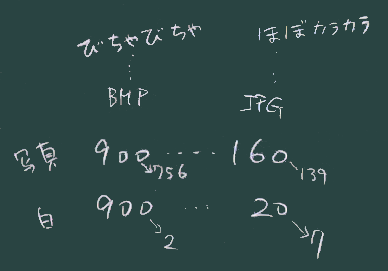 びちゃびちゃ ほぼカラカラ
BMP JPG
写真 900 160
756 139
白 900 20
2 7